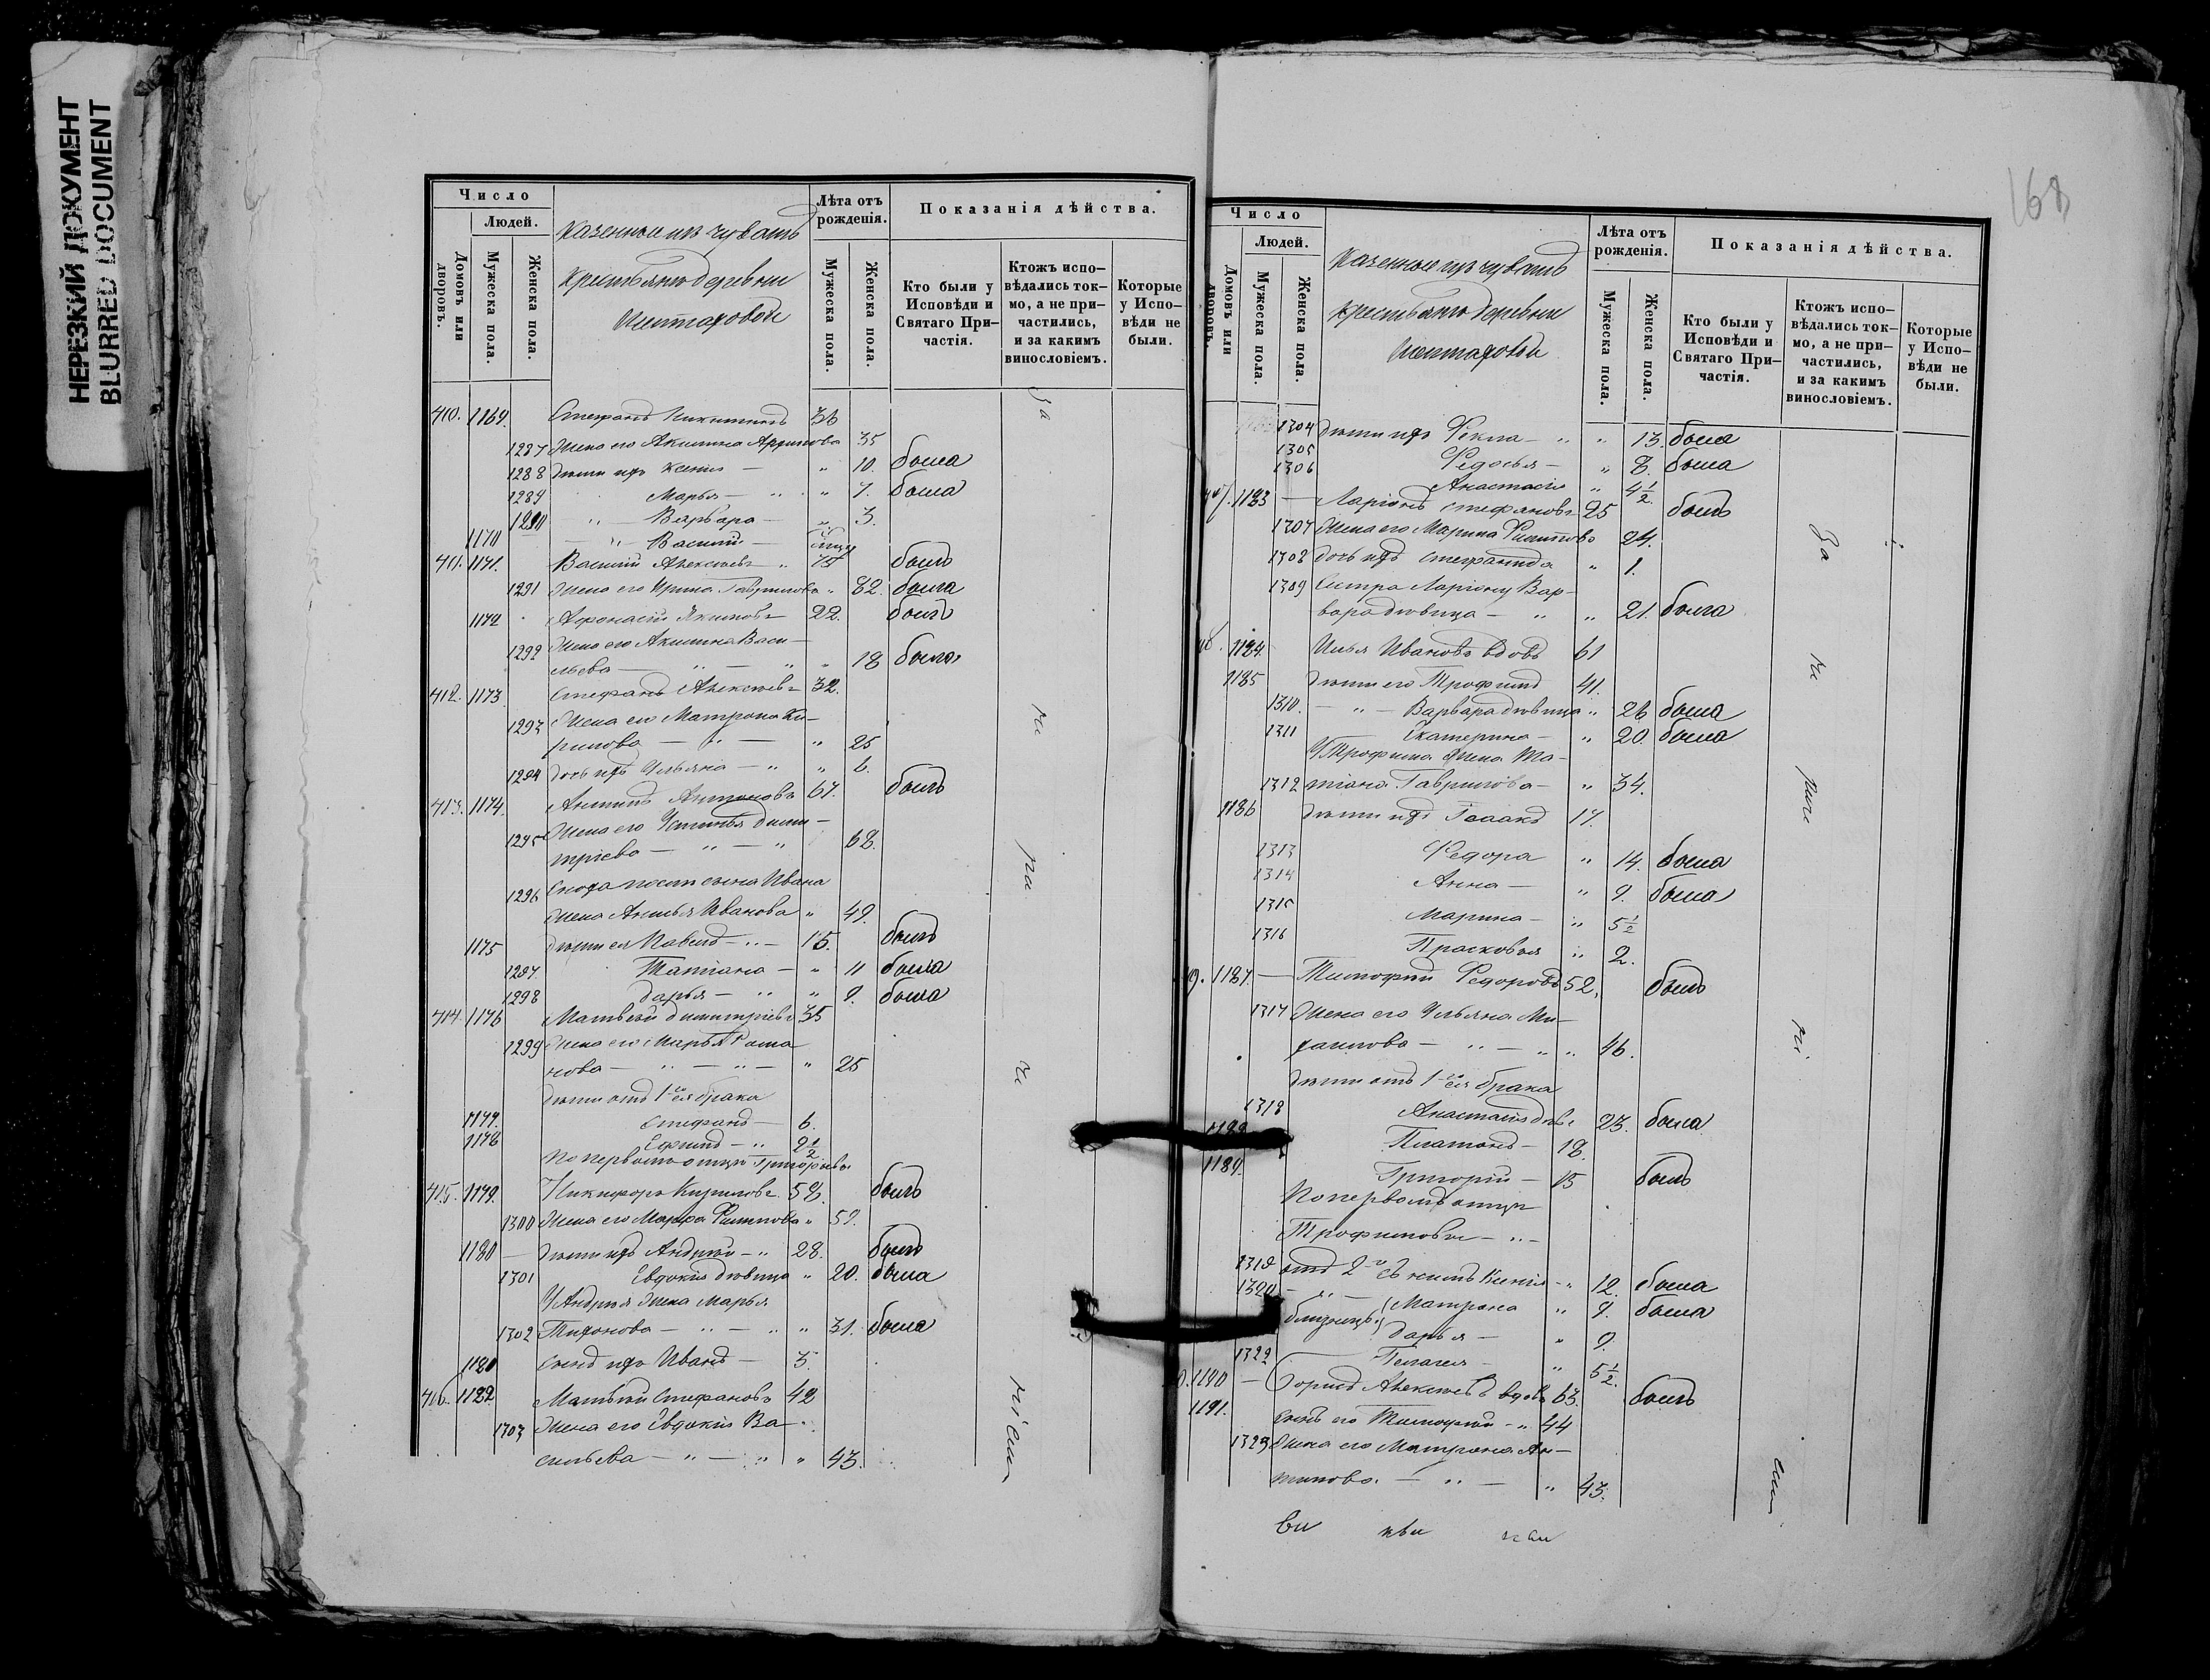 НЕРЕЗКИЙ ДОКУМЕНТ
BLURRED DOCUMENT
Число
Людей.
Домовъ или дворовъ.
Мужеска пола.
Женска пола.
Казенные изъ чувашъ
крестьяне деревни
Лѣта отъ рожденія.
Мужеска пола.
Женска пола.
Показанія дѣйства.
Кто были у Исповѣди и Святаго При-частія.
Ктожъ испо-вѣдались ток-мо, а не при-частились, и за какимъ винословіемъ.
Которые у Испо-вѣди не были.
410. 1169. Стефанъ Никитинъ 36
1287 Жена его Акилина Архипова 35
1288 Дѣти ихъ Ксенія — " 10. была
1289 Марья — " " 7. была
1290 " — Варвара — " 3.
1170 — " — Василій —
411. 1171. Василій Алексѣевъ " 75 былъ
1291 Жена его Ирина Гаврилова " 82. была
1172 Афонасій Якимовъ 22. былъ
1292 Жена его Акилина Васи-
льева — " — " " 18 была
412. 1173. Стефанъ Алексѣевъ 32.
1293 Жена его Матрона Ки-
рилова — " — " 25
1294 Дочь ихъ Ульяна — " " 6.
413. 1174. Антипъ Антоновъ 67. былъ
1295 Жена его Устинья Дими-
тріева — " — " 68.
1296 Сноха послѣ сына Ивана
жена Анисья Иванова " 49.
1175 Дѣти ея Павелъ — " — 15. былъ
1297 Татіана — " 11 была
1298 Дарья — " " 9. была
414. 1176 Матвѣй Димитріевъ 35
1299 Жена его Марья Рома
нова — " — " — " 25
Дѣти отъ 1-го ея брака
1177. Стефанъ — 6.
1178 Ефимъ — " 2½
По первому отцу Григорьевы
415. 1179. Никифоръ Кириловъ 58. былъ
1300 Жена его Марфа Филипова " 59.
1180 — Дѣти ихъ Андрей — " 28. былъ
1301 Евдокія дѣвица " 20. была
У Андрея жена Марья
1302 Тихонова — " — " " 31. была
1181 Сынъ ихъ Иванъ — 3.
416. 1182 Матвѣй Стефановъ 42
1303 Жена его Евдокія Ва-
сильева — " — " " 43.
168
Число
Людей.
Домовъ или дворовъ.
Мужеска пола.
Женска пола.
Казенные изъ чувашъ
крестьяне деревни
Лѣта отъ рожденія.
Мужеска пола.
Женска пола.
Показанія дѣйства.
Кто были у Исповѣди и Святаго При-частія.
Ктожъ испо-вѣдались ток-мо, а не при-частились, и за какимъ винословіемъ.
Которые у Испо-вѣди не были.
1304 Дѣти ихъ Фекла — " " 13. была
1305 Федосья — " 8. была
1306 Анастасія " 4½
1183 — Ларіонъ Стефановъ 25 былъ
1307 Жена его Марина Филипова 24.
1308 Дочь ихъ Стефанида " 1.
1309 Сестра Ларіону Вар-
вара дѣвица — " " 21. была
1184. Илья Ивановъ вдовъ 61
1185 Дѣти его Трофимъ 41.
1310. — " — Варвара дѣвица " 26 была
1311 Екатерина — " 20. была
У Трофима жена Та-
1312 тіана Гаврилова — " 34.
1186 Дѣти ихъ Ісаакъ 17.
1313 Федора " 14. была
1314 Анна — " 9. была
1315 Марина — " 5½
1316 Прасковья " 2.
1187. — Тимофей Федоровъ 52. былъ
1317 Жена его Ульяна Ми-
хайлова — " — " " 46.
Дѣти отъ 1-го ея брака
1318 Анастасія дѣв. 23. была
1188 Платонъ — 18.
1189. Григорій — 15 былъ
По первому отцу
Трофимовы — " —
1319 отъ 2-го съ нимъ Ксенія — " 12. была
1320 — " — Матрона " 9. была
близнецы Дарья — " 9.
1322 Пелагея — " 5½
1190 — Борисъ Алексѣевъ вдовъ 63. былъ
1191. Сынъ его Тимофей — " 44
1323 Жена его Матрона Ан-
типова. — " — " 43.